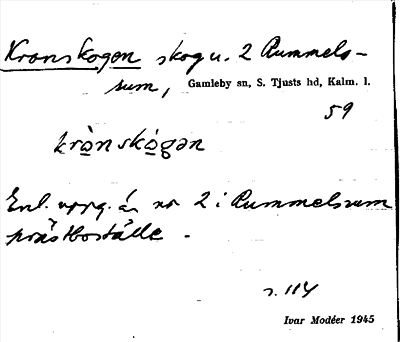 Kronskogen skog u. 2 Rummels-
sum, Gamleby sn, S. Tjusts hd, Kalm. l.
59
krò̱nskó̱gən
Enl. uppg. är no 2 i Rummelsum
prästboställe.
s. 114
Ivar Modéer 1945